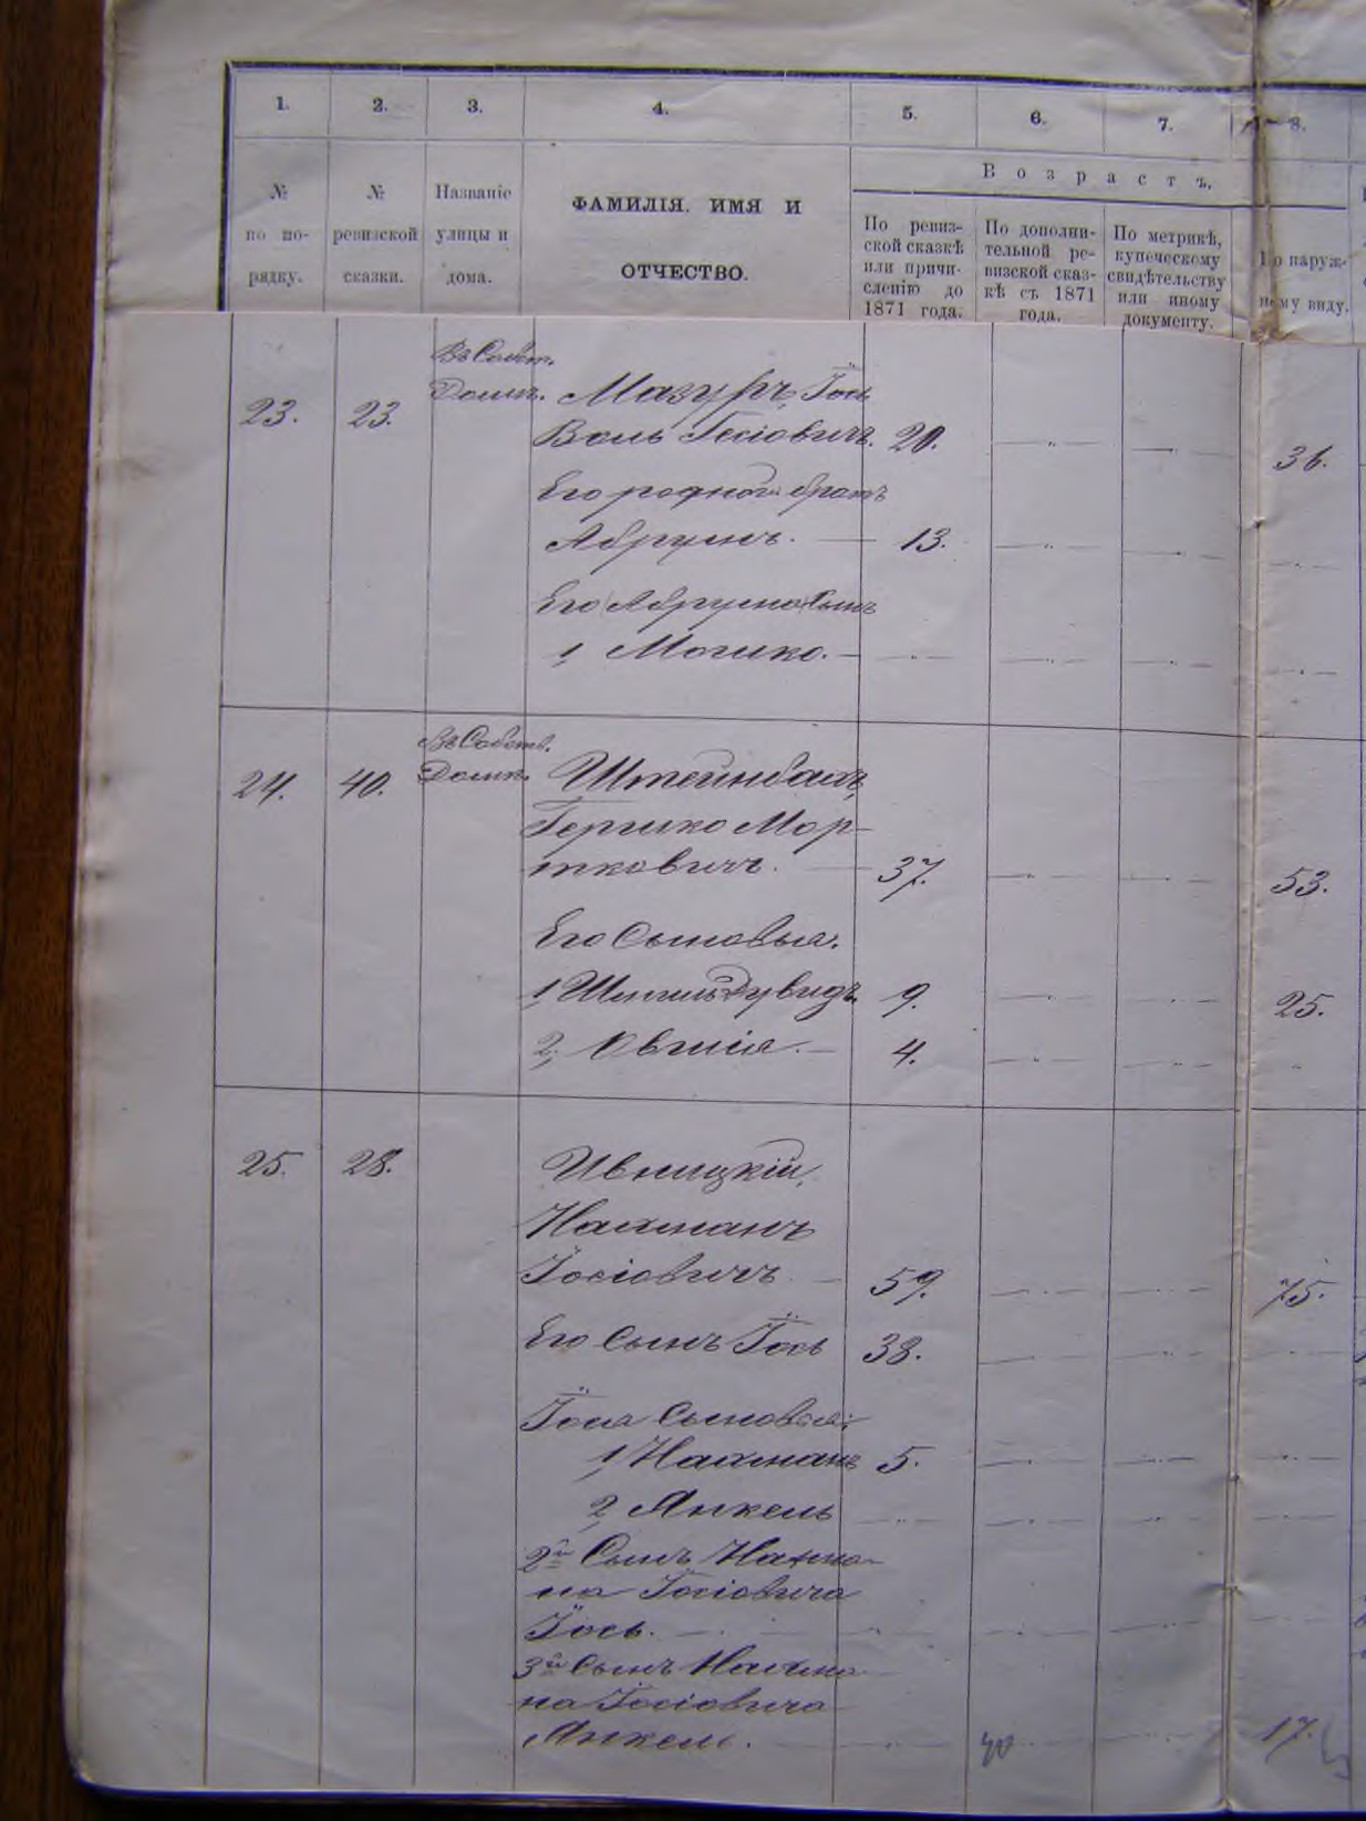 1. 2. 3. 4. 5. 6. 7. 8.
Возрастъ.
№ по по-рядку.
№ ревизской сказки.
Названіе улицы и дома.
ФАМИЛІЯ, ИМЯ И
ОТЧЕСТВО.
По ревиз-
ской сказкѣ
или причи-
сленію до
1871 года.
По дополни-
тельной ре-
визской сказ-
кѣ съ 1871
года.
По метрикѣ,
купеческому
свидѣтельству
или иному
документу.
По наруж-
ному виду.
Въ Собст.
23. 23. Домѣ. Мазуръ, Іось
Воль Іосіовичъ. 20. 36.
Его родной братъ
Абрумъ. 13.
Его Абрума сынъ
1, Мошко.
Въ Собств.
24. 40. Домѣ. Штейнбахъ,
Гершко Мор-
тковичъ. 37. 53.
Его Сыновья.
1, Дувидъ 9. 25.
2, Овшія. 4.
25. 28. Ивницкій,
Нахманъ
Іосіовичъ 59. 75.
Его Сынъ Іось 38.
Іося Сыновья:
1, Нахманъ 5.
2, Янкель
2й Сынъ Нахма-
на Іосіовича
Іось.
3й Сынъ Нахма-
на Іосіовича
Янкель. 40 17.